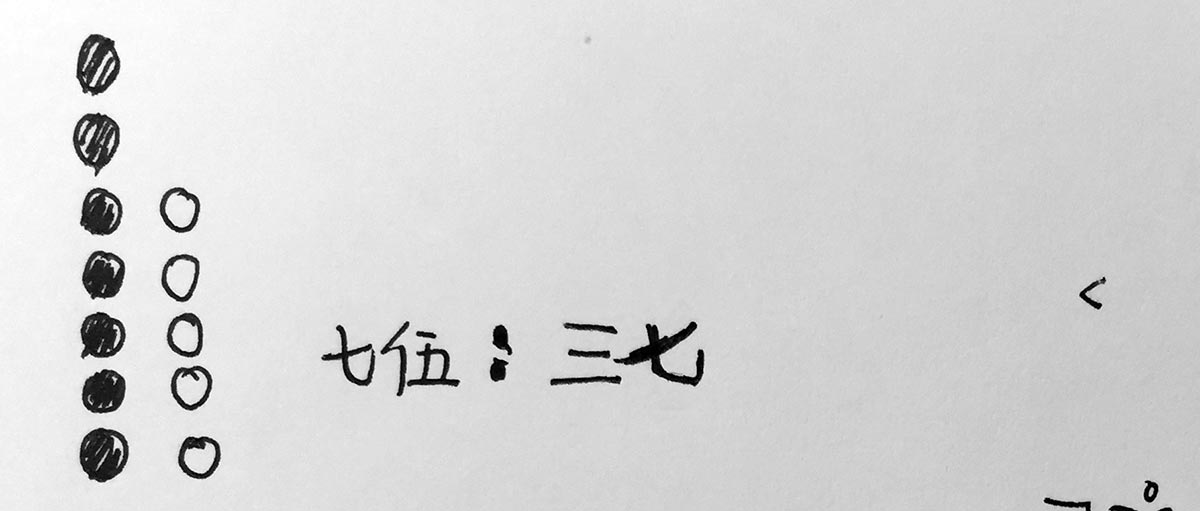 七伍：三七
<